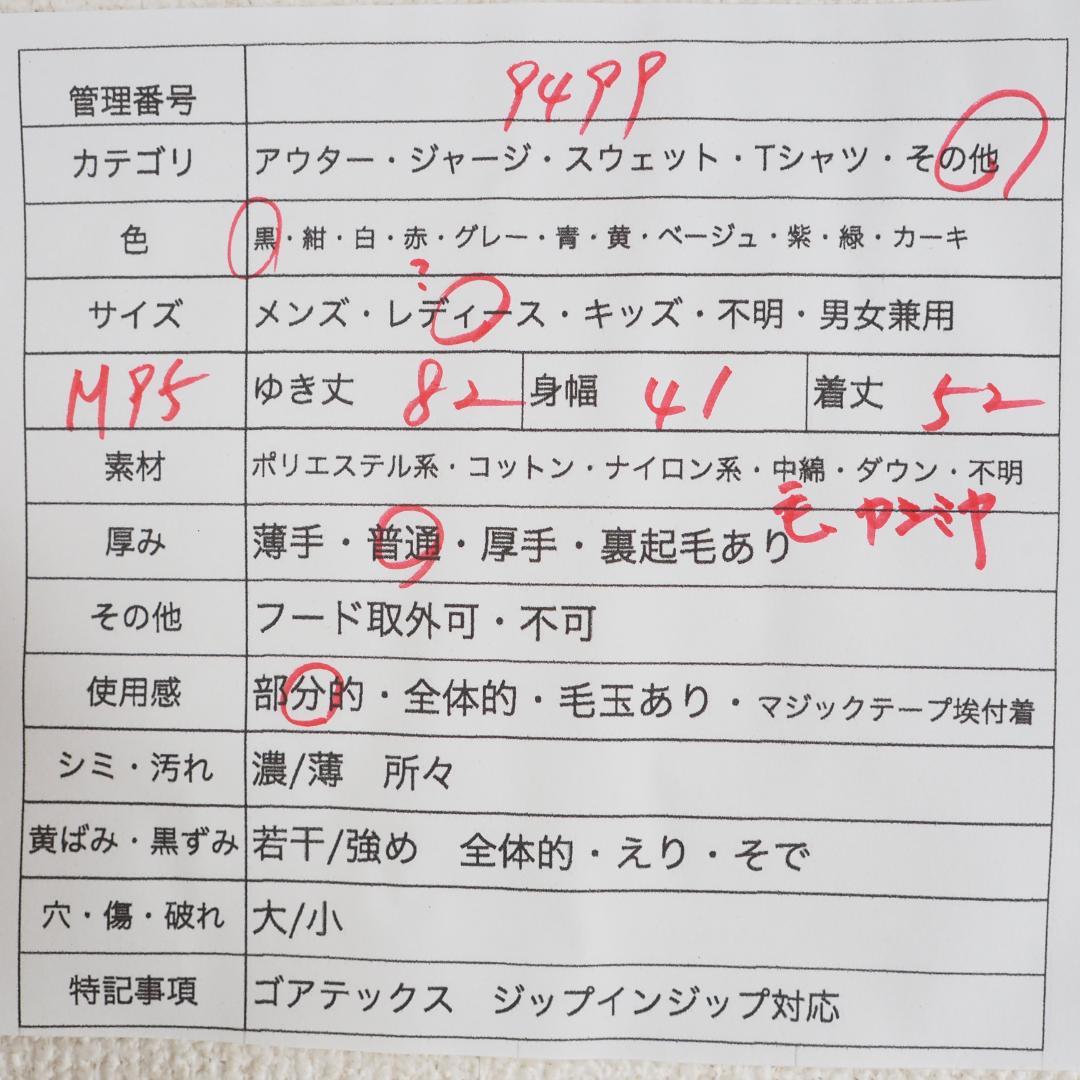 管理番号 9499
カテゴリ アウター・ジャージ・スウェット・Tシャツ・その他
色 黒・紺・白・赤・グレー・青・黄・ベージュ・紫・緑・カーキ
?
サイズ メンズ・レディース・キッズ・不明・男女兼用
M95 ゆき丈 82 身幅 41 着丈 52
素材 ポリエステル系・コットン・ナイロン系・中綿・ダウン・不明
毛 カシミヤ
厚み 薄手・普通・厚手・裏起毛あり
その他 フード取外可・不可
使用感 部分的・全体的・毛玉あり・マジックテープ埃付着
シミ・汚れ 濃/薄 所々
黄ばみ・黒ずみ 若干/強め 全体的・えり・そで
穴・傷・破れ 大/小
特記事項 ゴアテックス ジップインジップ対応